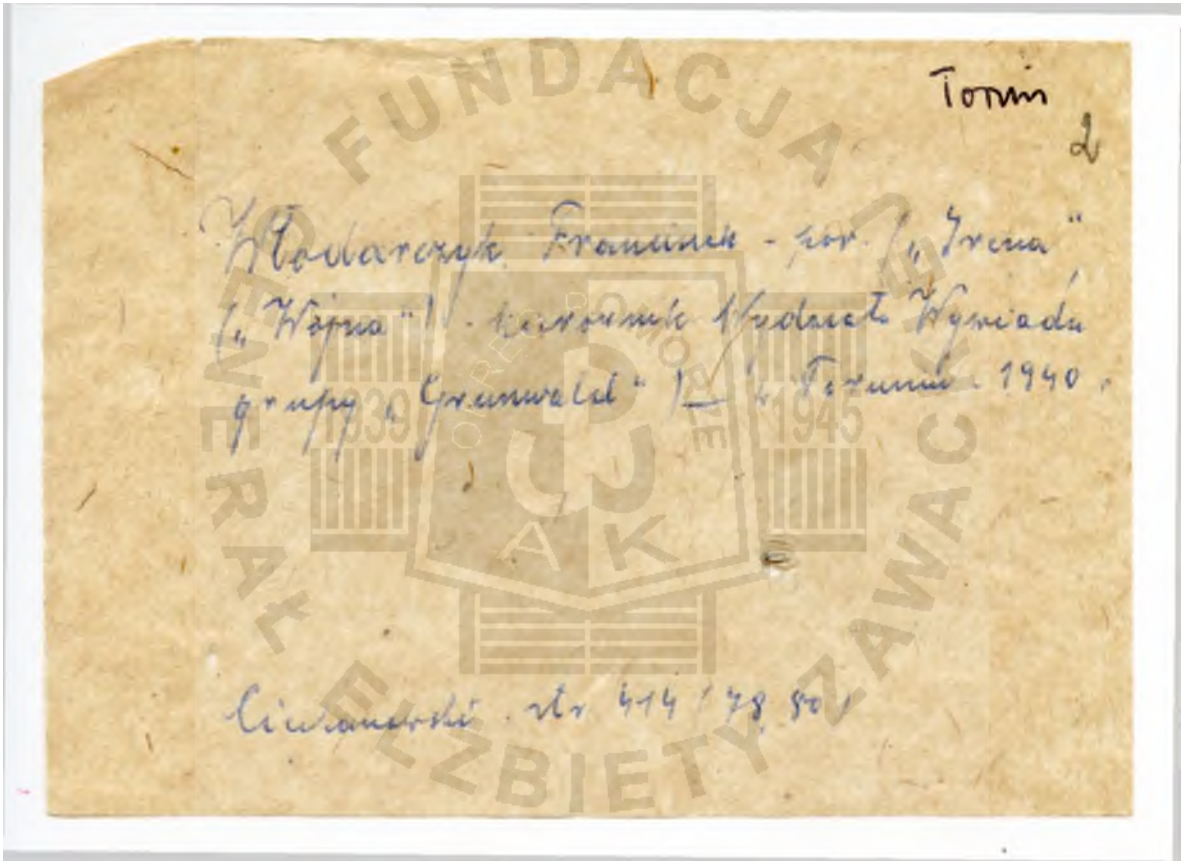 Toruń
2
Włodarczyk Franciszek - por. („Irena"
(„Wojna") - kierownik Wydziału Wywiadu
grupy „Grunwald") w Toruniu 1940.
str 414 / 78, 80 /
FUNDACJA GENERAŁ ELŻBIETY ZAWACKIEJ
OKRĘG POMORZE
1939 1945
AK